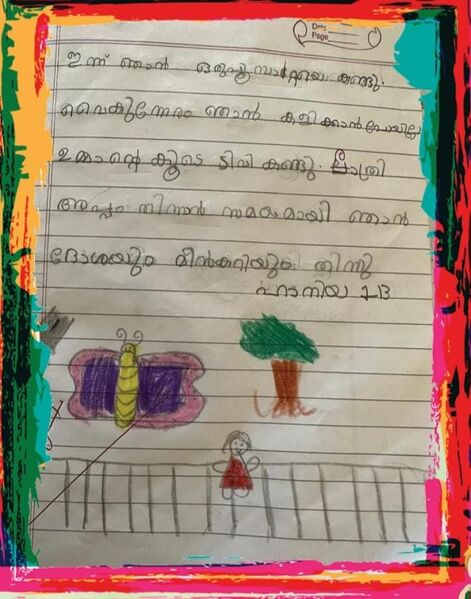 Date
Page
ഇന്ന് ഞാൻ ഒരു പൂമ്പാറ്റയെ കണ്ടു.
വൈകുന്നേരം ഞാൻ കളിക്കാൻ പോയില്ല
ഉമ്മാന്റെ കൂടെ ടിവി കണ്ടു. രാത്രി
അപ്പം തിന്നാൻ സമയമായി ഞാൻ
ദോശയും മീൻകറിയും തിന്നു
ഹാനിയ 1B